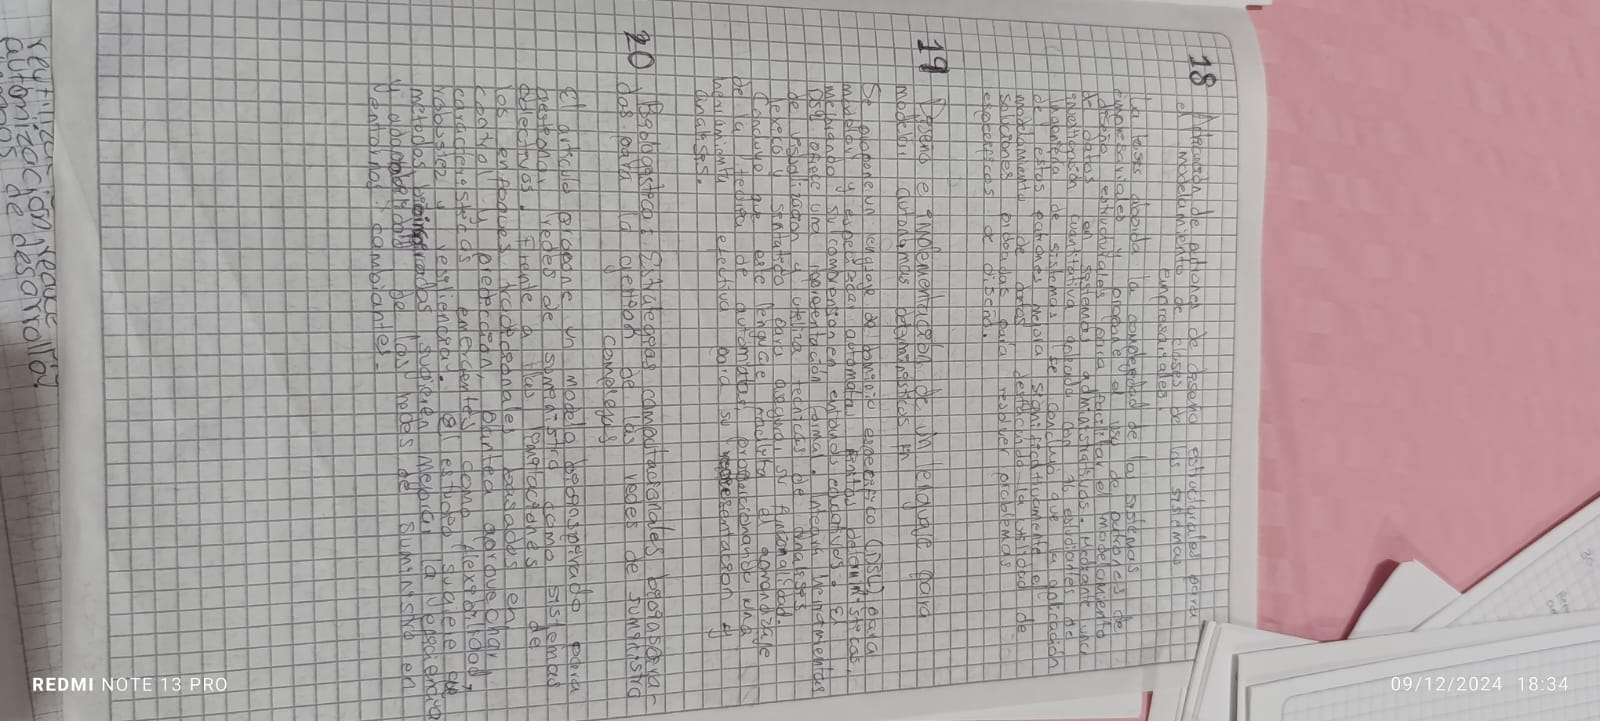 18 Aplicación de patrones de diseño estructurales para
el modelamiento de clases de los sistemas
empresariales.
La tesis aborda la complejidad de los sistemas
empresariales y propone el uso de patrones de
diseño estructurales para facilitar el modelamiento
de datos en sistemas administrativos. Mediante una
investigación cuantitativa aplicada con 26 estudiantes de
ingeniería de sistemas se concluyo que la aplicación
de estos patrones mejora significativamente el
modelamiento de datos destacando la utilidad de
soluciones probadas para resolver problemas
específicos de diseño.
19 Diseño e implementación de un lenguaje para
modelar autómatas determinísticos
Se propone un lenguaje de dominio específico (DSL) para
modelar y especificar autómatas finitos determinísticos,
mejorando su comprensión en entornos educativos. El
DSL ofrece una representación formal. Integra herramientas
de visualización y utiliza técnicas de análisis
léxico y sintáctico para asegurar su funcionalidad.
Concluye que este lenguaje facilita el aprendizaje
de la teoría de autómatas, proporcionando una
herramienta efectiva para su representación y
análisis.
20 Biologística: Estrategias computacionales bioinspiradas
para la gestión de las redes de suministro
complejas
El artículo propone un modelo bioinspirado para
gestionar redes de suministro como sistemas
colectivos. Frente a las limitaciones de
los enfoques tradicionales basados en
control y predicción, plantea aprovechar
características emergentes como flexibilidad,
robustez y resiliencia. El estudio sugiere que
métodos bioinspirados sugieren mejorar la
y adaptabilidad de las redes de suministro en
entornos cambiantes.
reutilización
automatización
de desarrollo.
REDMI NOTE 13 PRO
09/12/2024 18:34